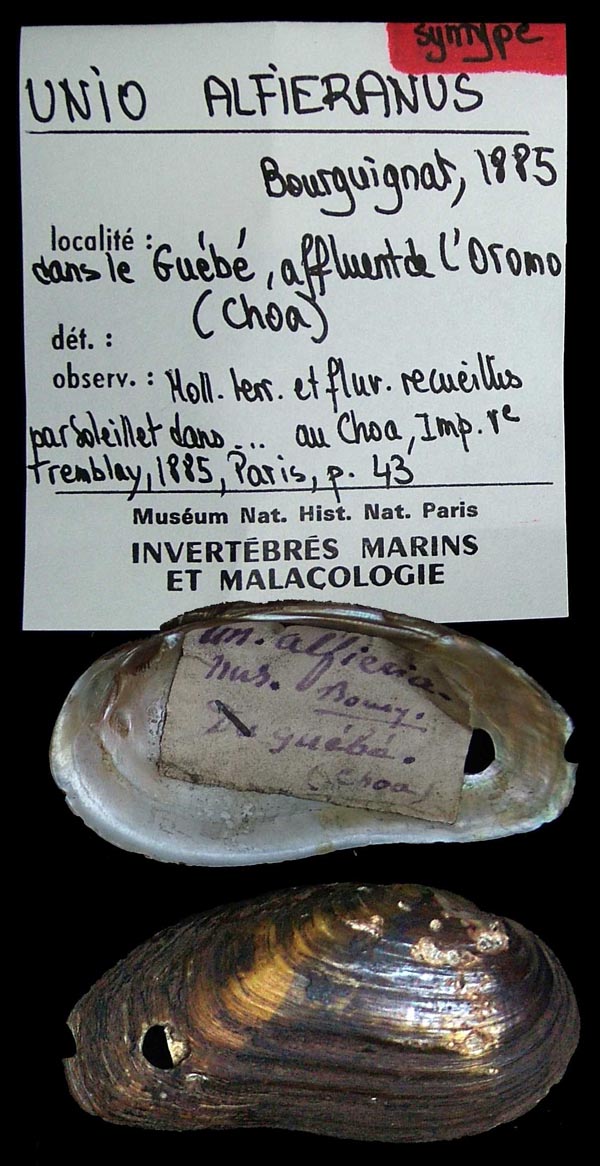 syntype
UNIO ALFIERANUS
Bourguignat, 1885
localité :
dans le Guébé, affluent de l'Oromo
(Choa)
dét. :
observ. : Moll. terr. et fluv. recueillis
par Soleillet dans ... au Choa, Imp. Ve
Tremblay, 1885, Paris, p. 43
Muséum Nat. Hist. Nat. Paris
INVERTÉBRÉS MARINS
ET MALACOLOGIE
un. alfiera-
nus. Bourg.
guébé.
(Choa)